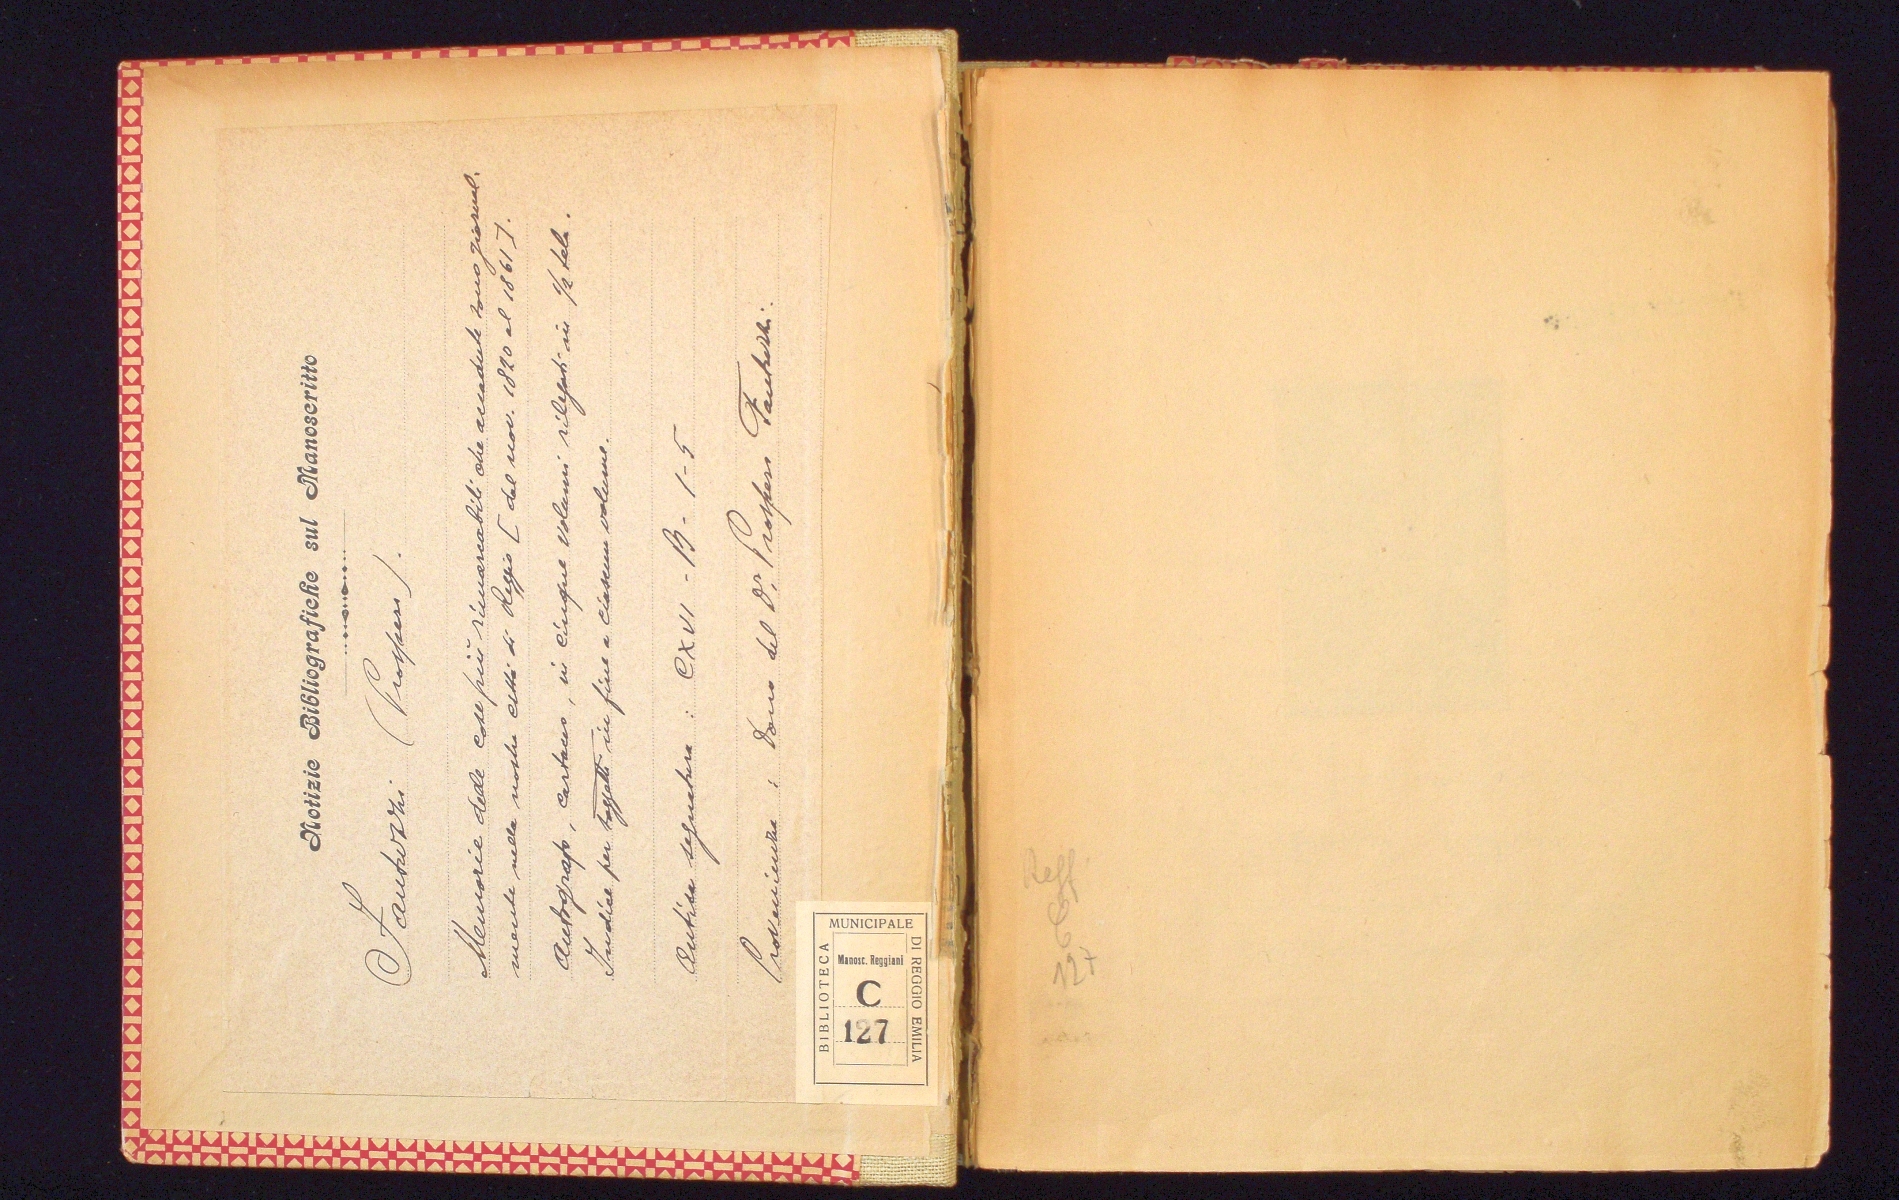 Notizie Bibliografiche sul Manoscritto
Fantuzzi (Prospero).
Memorie delle cose più rimarcabili che accadute sono giornal-
mente nella nostra città di Reggio [dal nov. 1820 al 1861].
Autografo, cartaceo, in cinque volumi rilegati in 1/2 tela.
Indice per soggetti in fine a ciascun volume.
Antica segnatura: CXVI - B - 1-5
Provenienza: Dono del Dr. Prospero Fantuzzi.
BIBLIOTECA MUNICIPALE DI REGGIO EMILIA
Manosc. Reggiani
C
127
Regg
C
127